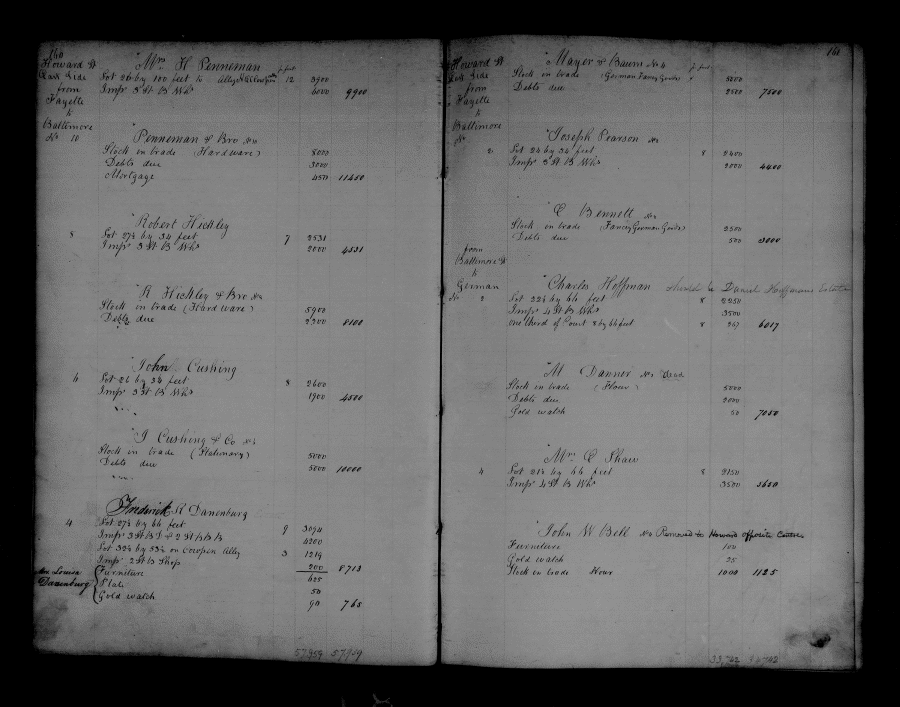 160
Howard St
East Side
from
Fayette
to
Baltimore
No 10
Mrs H Penneman
Lot 26 by 100 feet to Alley 12 3900
Imps 3 St B Whs 6000 9900
Penneman & Bro
Stock in trade (Hardware) 8000
Debts due 3000
Mortgage 450 11450
Robert Hickley
8 Lot 27½ by 34 feet 7 2531
Imps 3 St B Whs 2000 4531
R Hickley & Bro
Stock in trade (Hardware) 5900
Debts due 2200 8100
John Cushing
6 Lot 26 by 34 feet 8 2600
Imps 3 St B Whs 1900 4500
J Cushing & Co
Stock in trade (Stationary) 5000
Debts due 5000 10000
Frederick R Danenburg
4 Lot 27½ by 66 feet 9 3094
Imps 3 St B D & 2 St B B 4200
Lot 32½ by 53½ on Cowpen Alley 3 1219
Imps 2 St B Shop 200 8713
Mrs Louisa Danenburg
Furniture 625
Plate 50
Gold watch 90 765
57,959 57,959
161
Howard St
East Side
from
Fayette
to
Baltimore
No
Mayer & Baum No 4
Stock in trade (German Fancy Goods) 5000
Debts due 2500 7500
Joseph Pearson
2 Lot 24 by 34 feet 8 2400
Imps 3 St B Whs 2000 4400
C Bennett
Stock in trade (Fancy German Goods) 2500
Debts due 500 3000
from
Baltimore St
to
German
No 2
Charles Hoffman should be Daniel Hoffmans
Lot 22½ by 66 feet 8 2250
Imps 4 St B Whs 3500
one third of Court 8 by 66 feet 8 267 6017
M Danner No 2 dead
Stock in trade (Flour) 5000
Debts due 2000
Gold watch 50 7050
Mrs C Shaw
4 Lot 21½ by 66 feet 8 2150
Imps 4 St B Whs 3500 5650
John W Bell No 4 Removed to Howard opposite Centre
Furniture 100
Gold watch 25
Stock in trade Flour 1000 1125
33,742